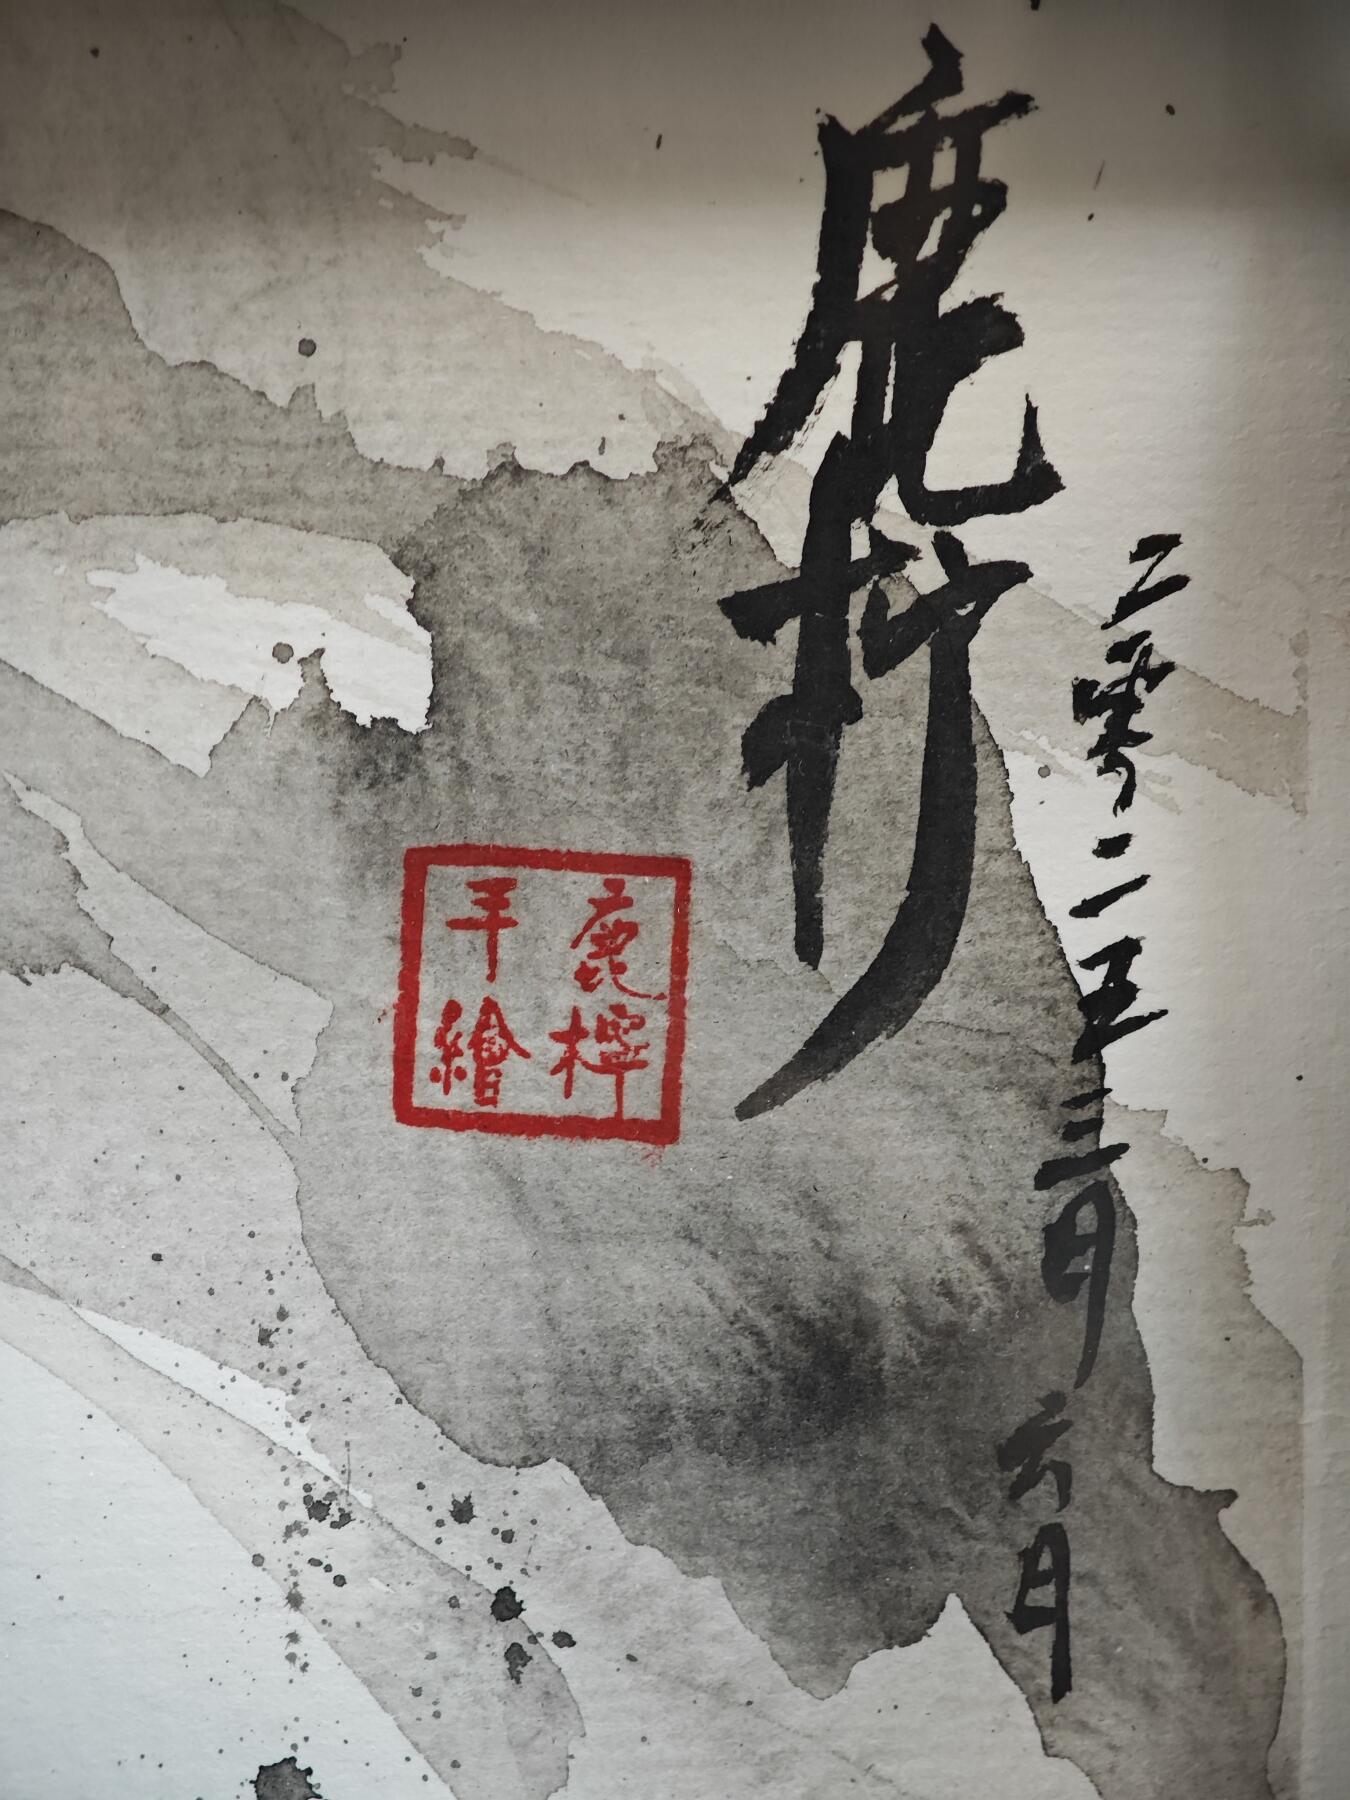 二零二五三月六日
鹿柠
鹿檸
手繪